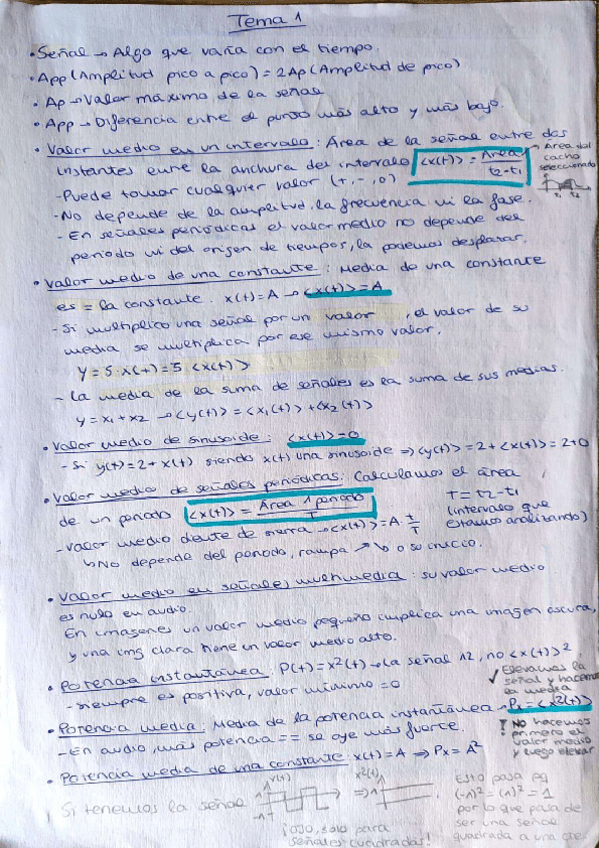 Tema 1
• Señal → Algo que varía con el tiempo.
• App (Amplitud pico a pico) = 2Ap (Amplitud de pico)
• Ap → Valor máximo de la señal
• App → Diferencia entre el punto más alto y más bajo.
• Valor medio en un intervalo: Área de la señal entre dos
instantes entre la anchura del intervalo <x(t)> = Área / t2-t1
Area del
cacho
seleccionado
t1 t2
- Puede tomar cualquier valor (+, -, 0)
- No depende de la amplitud, la frecuencia ni la fase.
- En señales periódicas el valor medio no depende del
periodo ni del origen de tiempos, la podemos desplazar.
• Valor medio de una constante: Media de una constante
es = la constante. x(t) = A → <x(t)> = A
- Si multiplico una señal por un valor , el valor de su
media se multiplica por ese mismo valor.
y = 5·x(t) = 5·<x(t)>
- La media de la suma de señales es la suma de sus medias.
y = x1 + x2 → <y(t)> = <x1(t)> + <x2(t)>
• Valor medio de sinusoide: <x(t)> = 0
- Si y(t) = 2 + x(t) siendo x(t) una sinusoide => <y(t)> = 2 + <x(t)> = 2+0
• Valor medio de señales periódicas: Calculamos el área
de un periodo <x(t)> = Área 1 periodo / T
t = t2 - t1
(intervalo que
estamos analizando)
- Valor medio diente de sierra → <x(t)> = A · t/T
↳ No depende del periodo, rampa ↗↘ o su inicio.
• Valor medio en señales multimedia: su valor medio
es nulo en audio.
En imagenes un valor medio pequeño implica una imagen oscura,
y una img clara tiene un valor medio alto.
• Potencia instantánea: P(t) = x²(t) → La señal ^2, no <x(t)>²
- Siempre es positiva, valor mínimo = 0
✓ Elevamos la
señal y hacemos
la media
• Potencia media: Media de la potencia instantánea → Px = <x²(t)>
- En audio, más potencia == se oye más fuerte.
! NO hacemos
primero el
valor medio
y luego elevar
• Potencia media de una constante: x(t) = A => Px = A²
Si tenemos la señal
1
-1
x²(t)
=> 1
¡OJO, solo para
señales cuadradas!
Esto pasa pq
(-1)² = (1)² = 1
por lo que pasa de
ser una señal
cuadrada a una cte